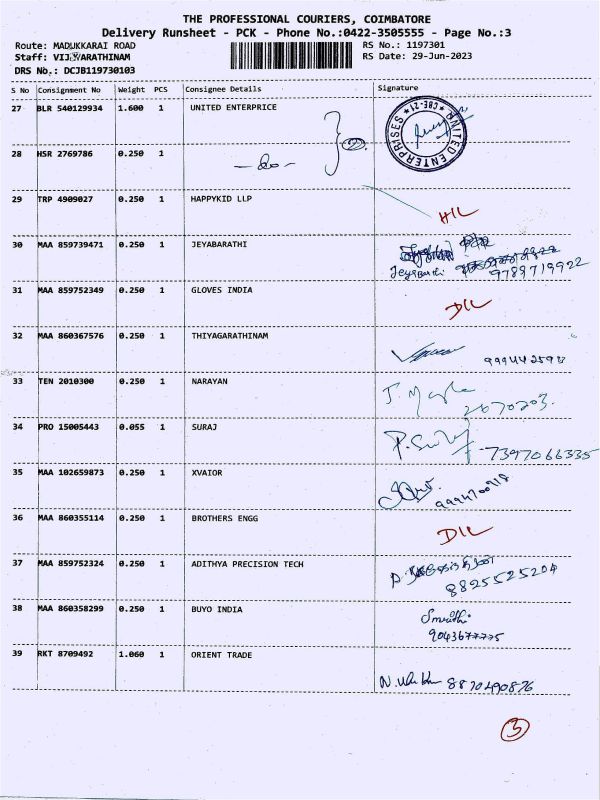 THE PROFESSIONAL COURIERS, COIMBATORE
Delivery Runsheet - PCK - Phone No.:0422-3505555 - Page No.:3
Route: MADUKKARAI ROAD
RS No.: 1197301
Staff: VIJAYARATHINAM
RS Date: 29-Jun-2023
DRS No.: DCJB119730103
S No Consignment No Weight PCS Consignee Details Signature
27 BLR 540129934 1.600 1 UNITED ENTERPRICE
UNITED ENTERPRISES * CBE-21 *
28 HSR 2769786 0.250 1
29 TRP 4909027 0.250 1 HAPPYKID LLP
30 MAA 859739471 0.250 1 JEYABARATHI
Jeyabarathi
9789719922
31 MAA 859752349 0.250 1 GLOVES INDIA
DIL
32 MAA 860367576 0.250 1 THIYAGARATHINAM
33 TEN 2010300 0.250 1 NARAYAN
34 PRO 15005443 0.055 1 SURAJ
7397066335
35 MAA 102659873 0.250 1 XVAIOR
36 MAA 860355114 0.250 1 BROTHERS ENGG
DIL
37 MAA 859752324 0.250 1 ADITHYA PRECISION TECH
8825525204
38 MAA 860358299 0.250 1 BUYO INDIA
39 RKT 8709492 1.060 1 ORIENT TRADE
8870490876
3